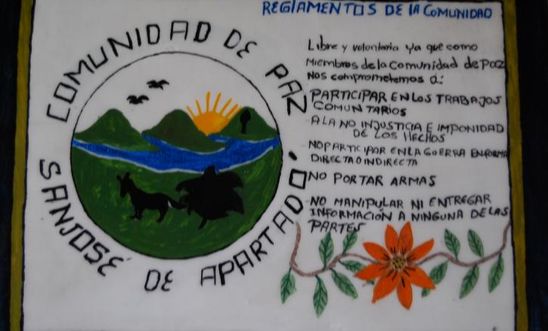 COMUNIDAD DE PAZ
SAN JOSÉ DE APARTADÓ.
REGLAMENTOS DE LA COMUNIDAD
Libre y voluntaria ya que como
Miembros de la Comunidad de PAZ
Nos comprometemos a:
PARTICIPAR EN LOS TRABAJOS
COMUNITARIOS
A LA NO INJUSTICIA E IMPONIDAD
DE LOS HECHOS
NO PARTICIPAR EN LA GUERRA EN FORMA
DIRECTA O INDIRECTA
NO PORTAR ARMAS
NO MANIPULAR NI ENTREGAR
INFORMACIÓN A NINGUNA DE LAS
PARTES